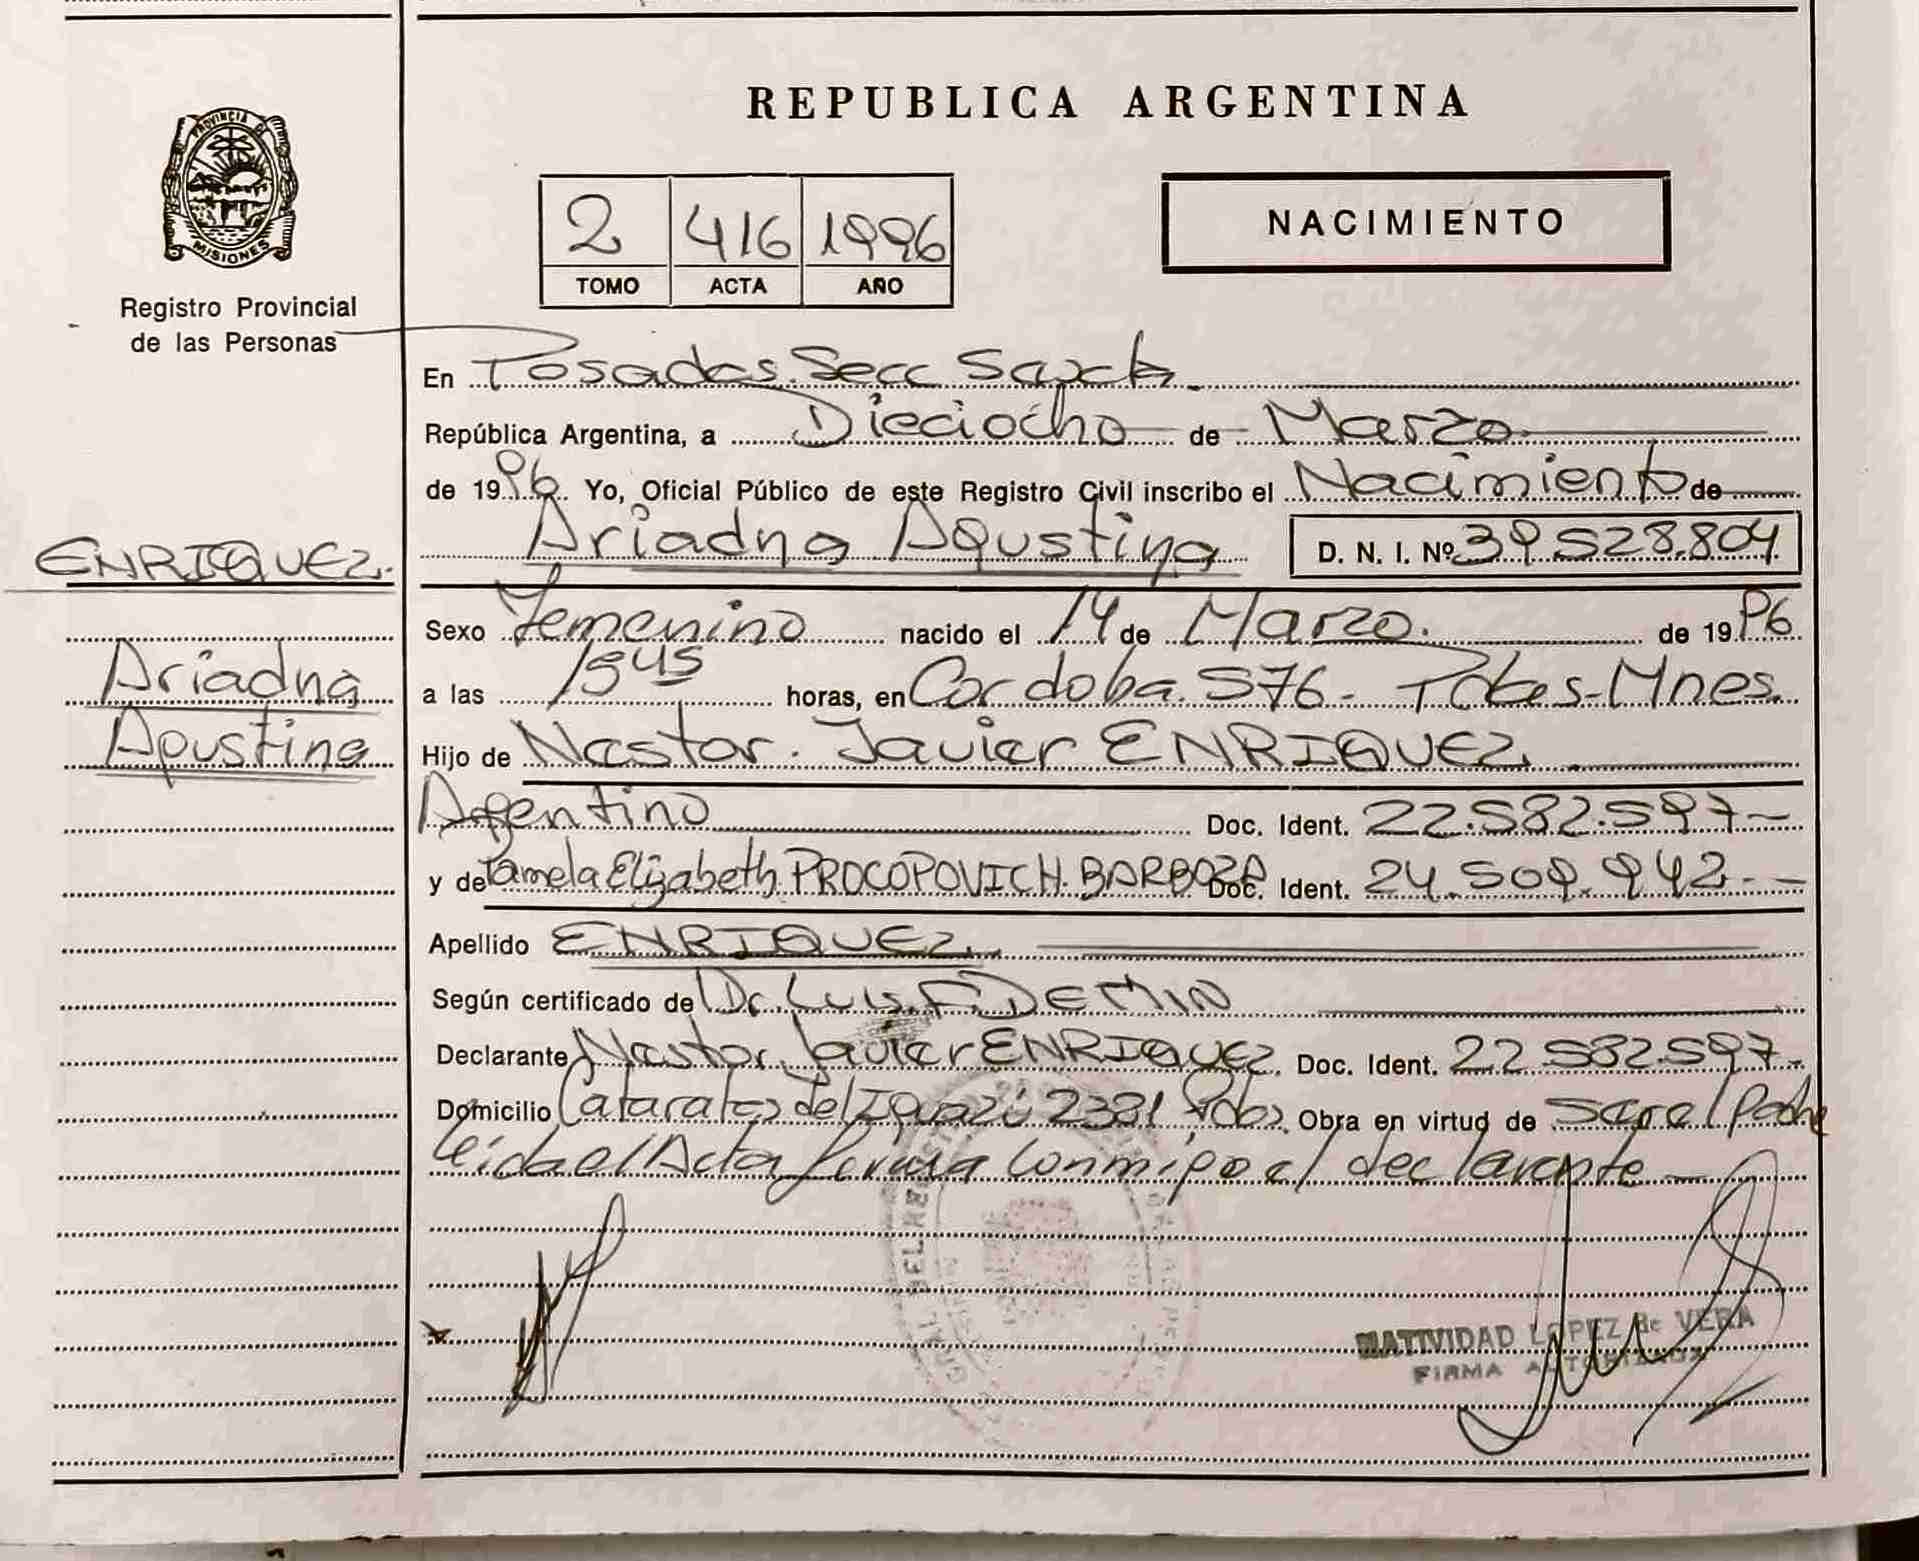 REPUBLICA ARGENTINA
PROVINCIA DE
MISIONES
Registro Provincial
de las Personas
2 416 1996
TOMO ACTA AÑO
NACIMIENTO
En Posadas. Secc Sexta.
República Argentina, a Dieciocho de Marzo
de 1996 Yo, Oficial Público de este Registro Civil inscribo el Nacimiento de
Ariadna Agustina D. N. I. Nº 39.528.804
ENRIQUEZ.
Ariadna
Agustina
Sexo Femenino nacido el 14 de Marzo. de 1996
a las horas, en Cordoba. 576- Pdas-Mnes.
Hijo de Nestor. Javier ENRIQUEZ
Argentino Doc. Ident. 22.582.597-
y de Pamela Elizabeth PROCOPOVICH BARBOZA Doc. Ident. 24.509.942.-
Apellido ENRIQUEZ
Según certificado de Dr. Luis. F. DEMIN
Declarante Nestor. Javier ENRIQUEZ. Doc. Ident. 22.582.597-
Domicilio Cataratas del Iguazú 2381 Pdas. Obra en virtud de ser el Padre
leida el Acta firma conmigo el declarante-
NATIVIDAD LOPEZ de VERA
FIRMA AUTORIZADA